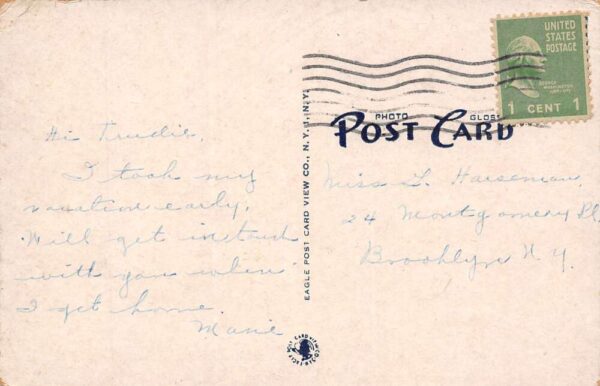 Hi Trudie,
I took my
vacation early.
Will get in touch
with you when
I get home.
Marie
EAGLE POST CARD VIEW CO., N. Y. 1, N. Y.
UNITED
STATES
POSTAGE
GEORGE
WASHINGTON
1 CENT 1
PHOTO GLOSS
POST CARD
Miss T. Haiseman
24 Montgomery Pl.
Brooklyn N.Y.